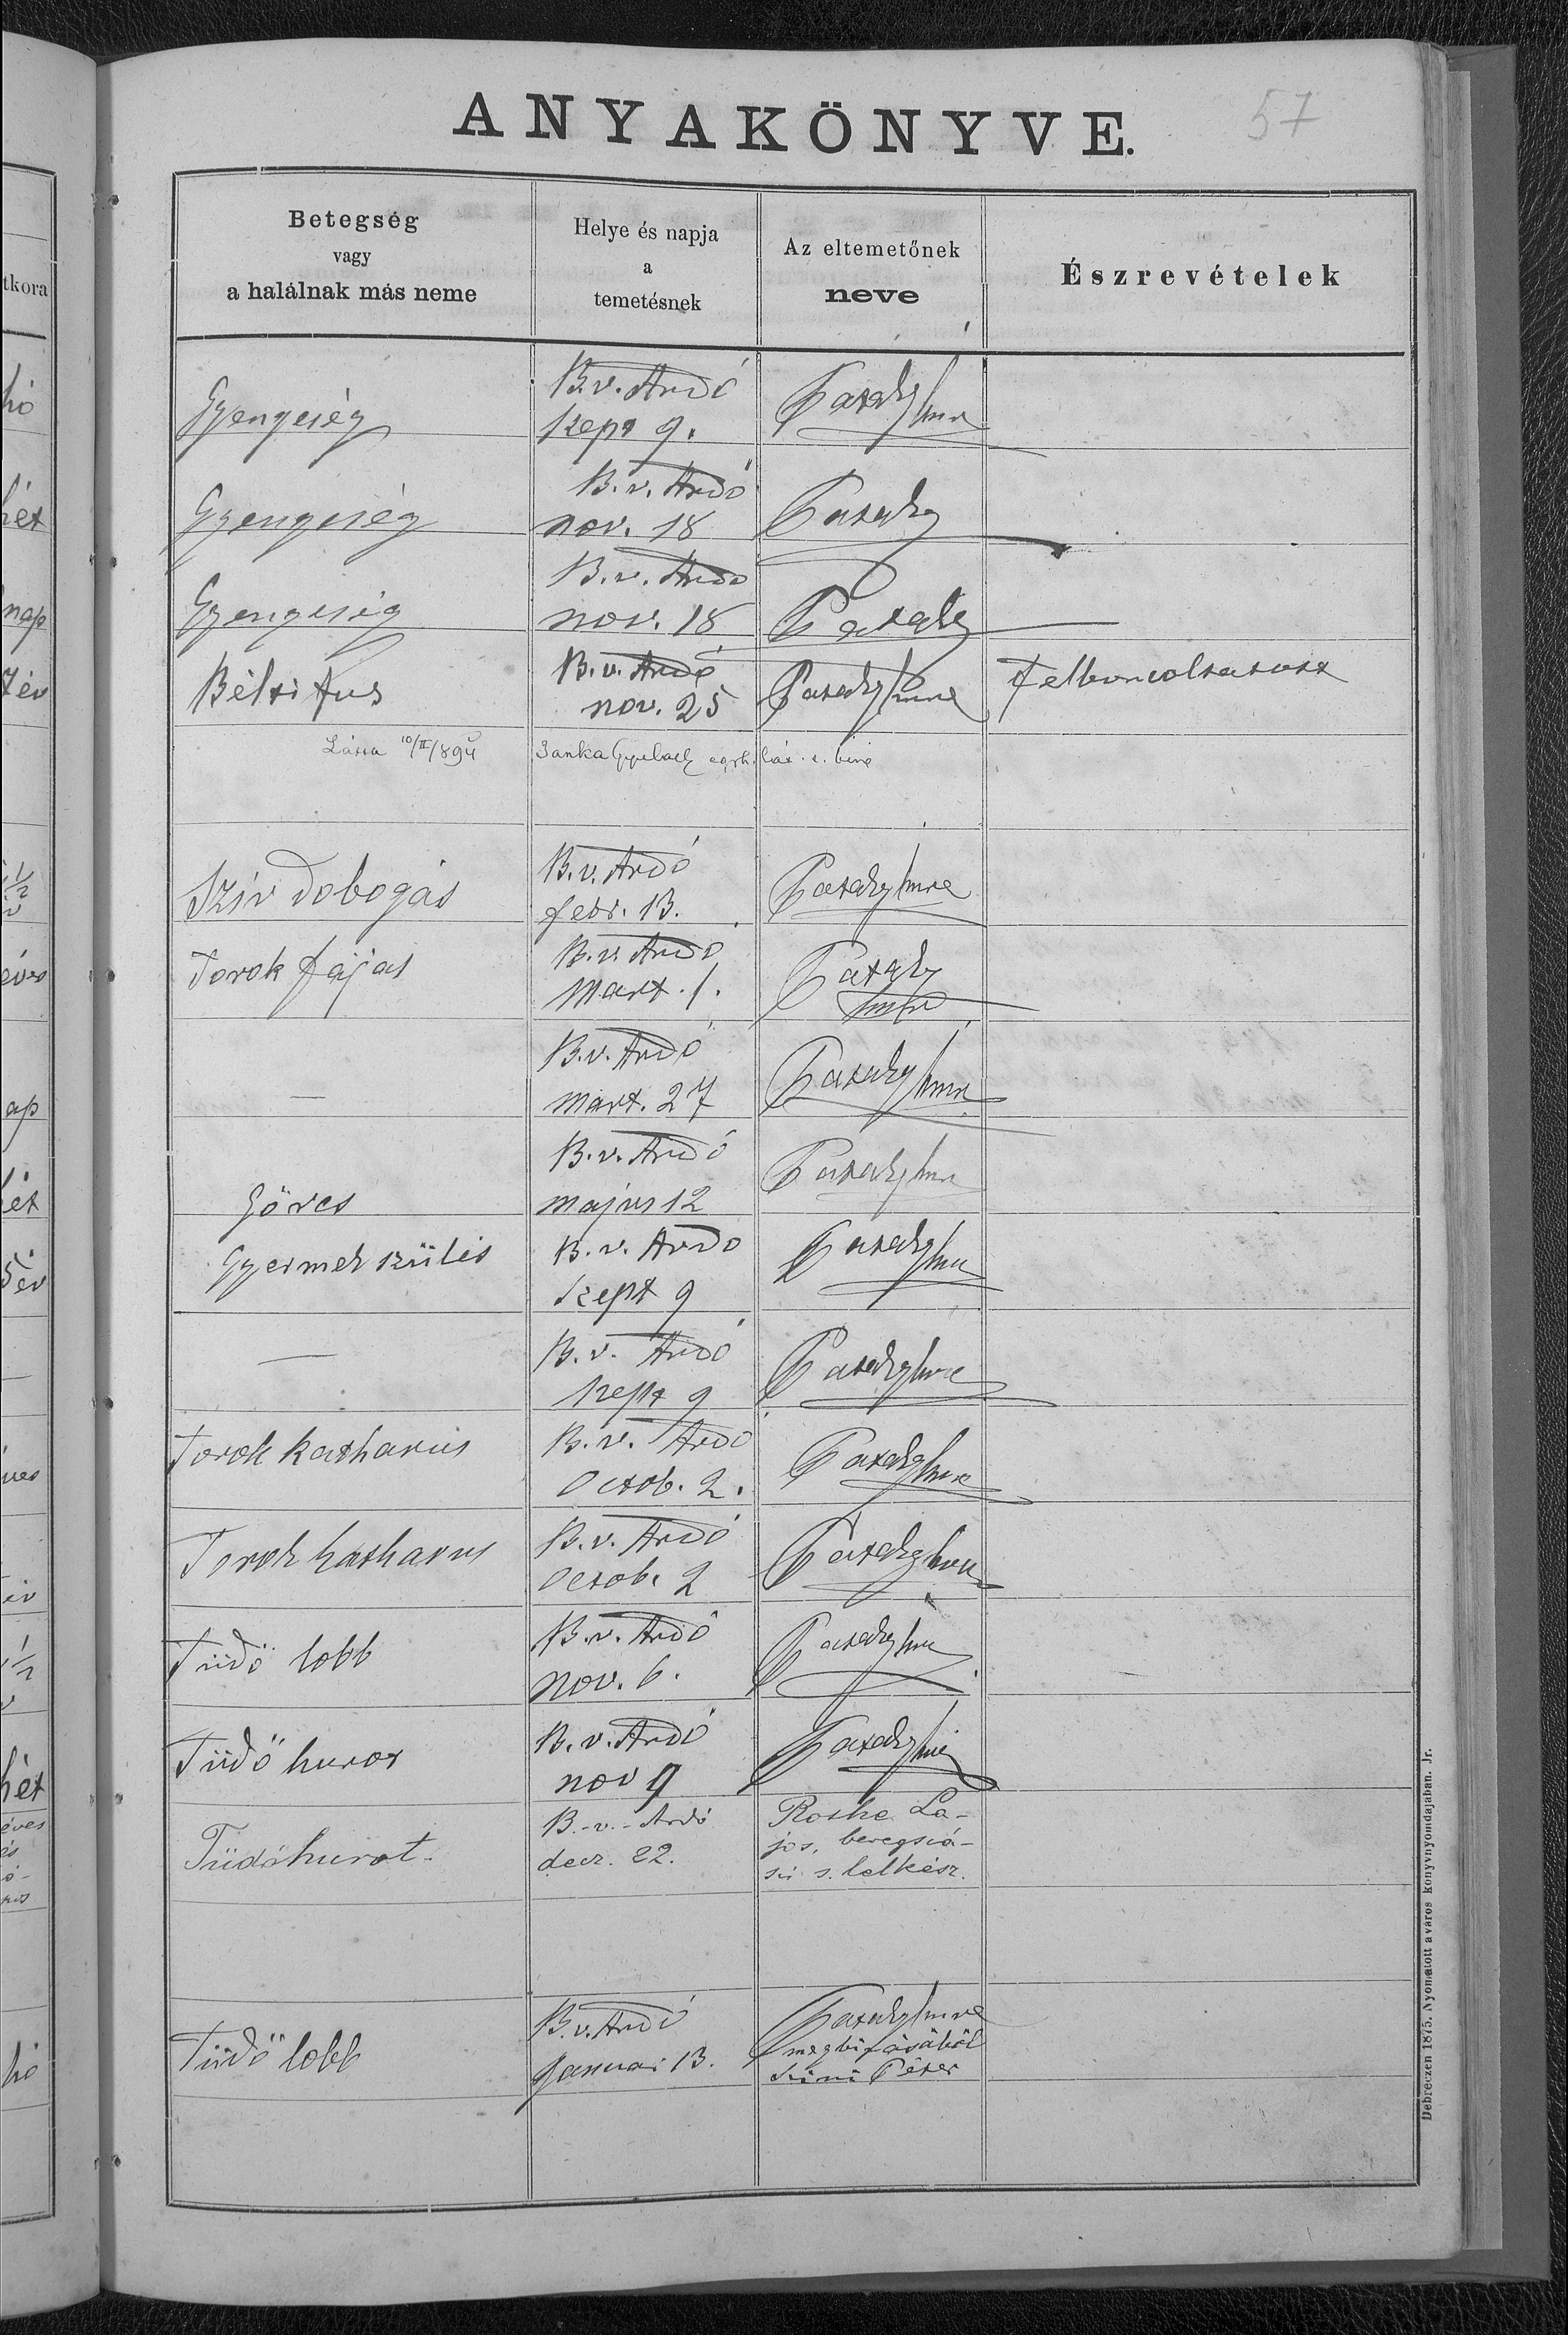 ANYAKÖNYVE.
57
Betegség
vagy
a halálnak más neme
Helye és napja
a
temetésnek
Az eltemetőnek
neve
Észrevételek
tkora
hó
Gyengeség
B.v. Ardó
Szept 9.
Pataky Imre
hét
Gyengeség
B.v. Ardó
nov. 18
Pataky
nap
Gyengeség
B.v. Ardo
nov. 18
Pataky
7 év
Béltifus
B.v. Ardó
nov. 25
Pataky Imre
Felbonczoltatott
Látta 10/II/894
Janka
Szív dobogás
B.v. Ardó
febr. 13.
Pataky Imre
éves
Torok fájás
B.v. Ardó
Mart. 1.
Pataky
Imre
ap
—
B.v. Ardó
mart. 27
Pataky Imre
hét
Görcs
B.v. Ardó
május 12
Pataky Imre
5 év
Gyermek szülés
B.v. Ardo
Szept 9
Pataky Imre
—
B.v. Ardó
Szept 9
Pataky Imre
Torok katharus
B.v. Ardó
Octob. 2.
Pataky Imre
Torok katharus
B.v. Ardó
Octob. 2
Pataky Imre
Tüdő lobb
B.v. Ardó
nov. 6.
Pataky Imre
hét
Tüdő hurot
B.v. Ardó
nov 9
Pataky Imre
éves
és
Tüdőhurot.
B.-v.-Ardó
decz. 22.
Roshe La-
jos, beregszá-
szi s. lelkész.
hó
Tüdő lobb
B.v. Ardó
Januar 13.
Pataky Imre
megbizásából
Szini Péter
Debreczen 1875. Nyomatott a város könyvnyomdájában. Jr.